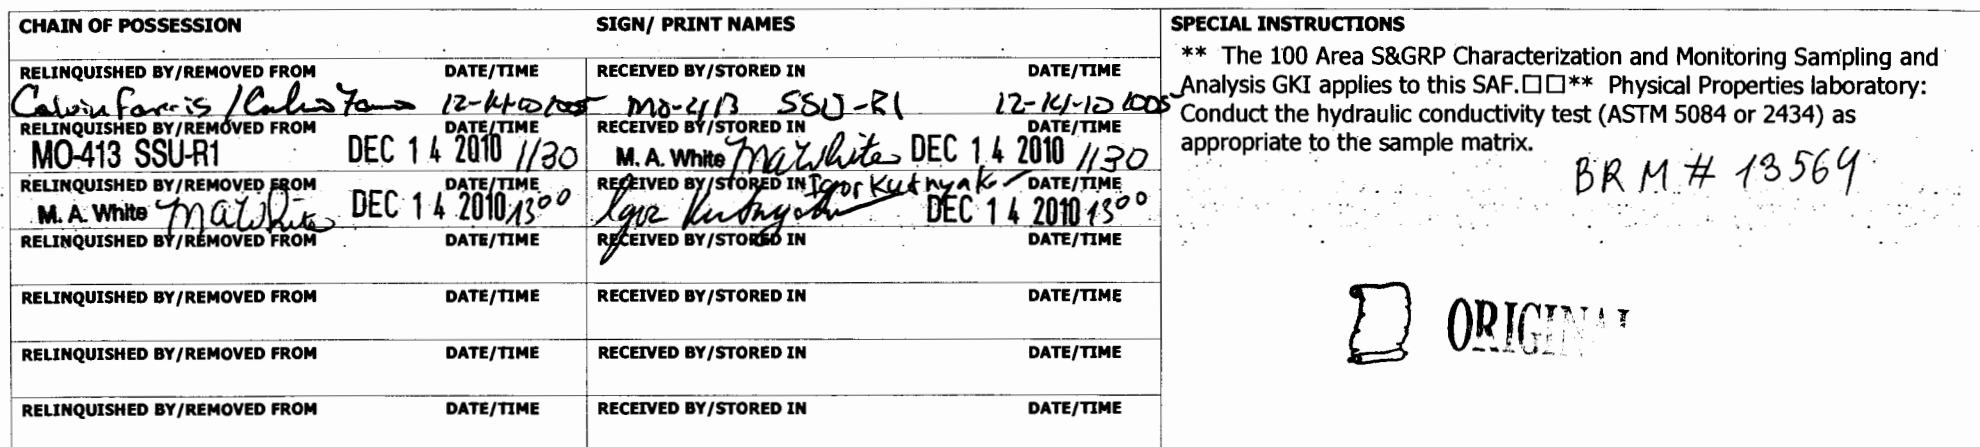 CHAIN OF POSSESSION SIGN/ PRINT NAMES
RELINQUISHED BY/REMOVED FROM DATE/TIME RECEIVED BY/STORED IN DATE/TIME
Calvin Farris / 12-14-10 1005 MO-413 SSU-R1 12-14-10 1005
RELINQUISHED BY/REMOVED FROM DATE/TIME RECEIVED BY/STORED IN DATE/TIME
MO-413 SSU-R1 DEC 14 2010 1130 M. A. White MAWhite DEC 14 2010 1130
RELINQUISHED BY/REMOVED FROM DATE/TIME RECEIVED BY/STORED IN Igor Kutnyakov DATE/TIME
M. A. White MAWhite DEC 14 2010 1300 Igor Kutnyakov DEC 14 2010 1300
RELINQUISHED BY/REMOVED FROM DATE/TIME RECEIVED BY/STORED IN DATE/TIME
RELINQUISHED BY/REMOVED FROM DATE/TIME RECEIVED BY/STORED IN DATE/TIME
RELINQUISHED BY/REMOVED FROM DATE/TIME RECEIVED BY/STORED IN DATE/TIME
RELINQUISHED BY/REMOVED FROM DATE/TIME RECEIVED BY/STORED IN DATE/TIME
SPECIAL INSTRUCTIONS
** The 100 Area S&GRP Characterization and Monitoring Sampling and
Analysis GKI applies to this SAF.□□** Physical Properties laboratory:
Conduct the hydraulic conductivity test (ASTM 5084 or 2434) as
appropriate to the sample matrix.
BRM # 13564
ORIGINAL